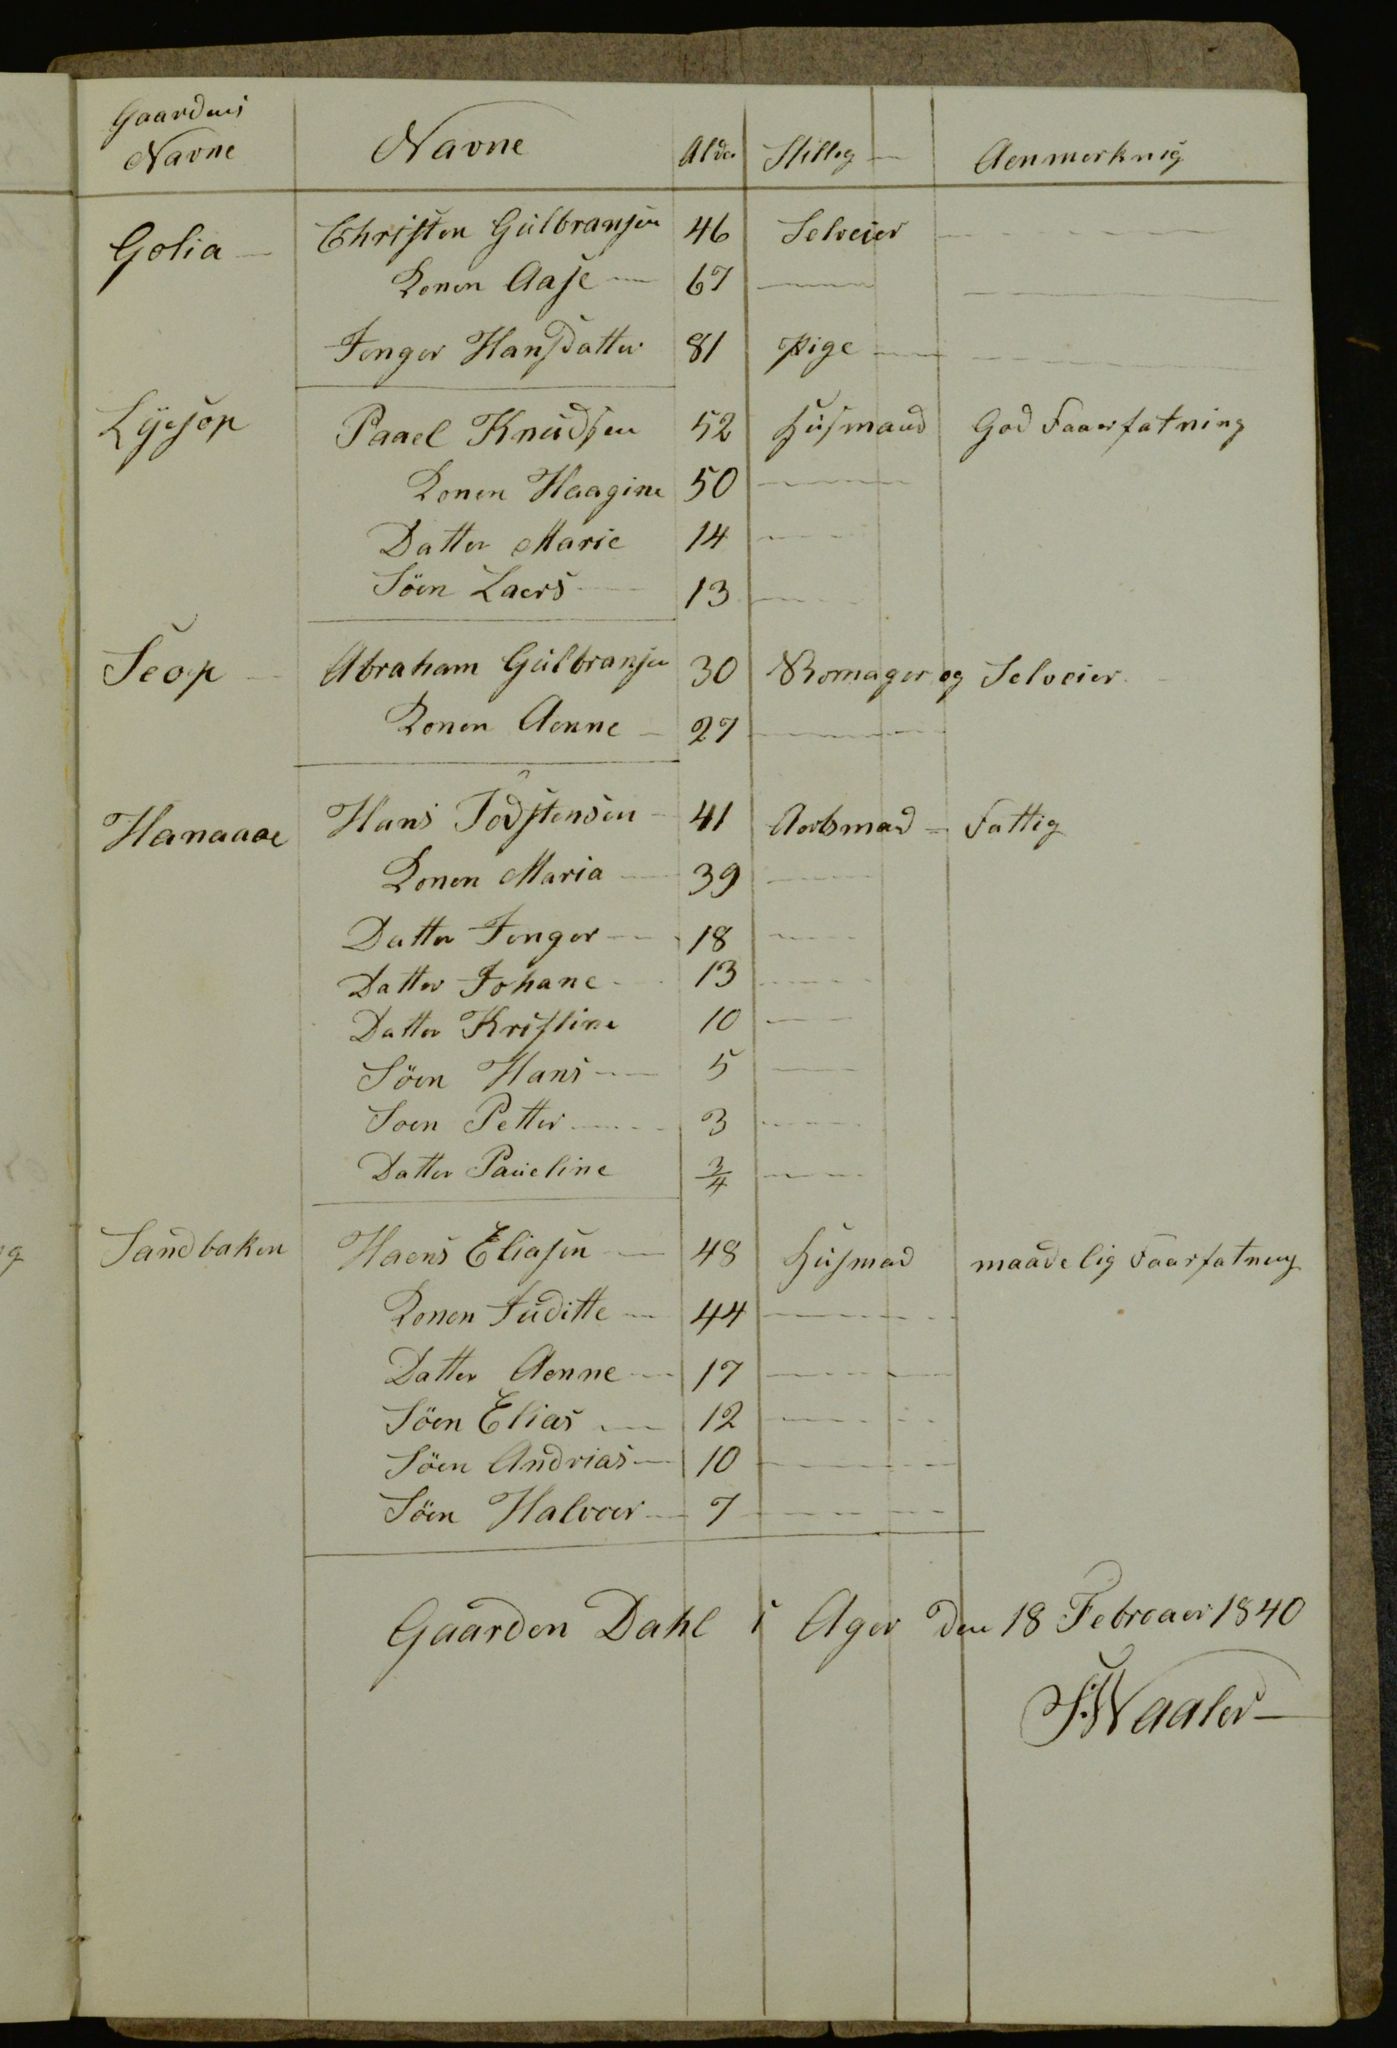 Gaardens
Navne Navne Alder Stilleg Aenmerknig
Golia Christen Gülbransen 46 Selveier
Konen Aase 67
Jenger Hansdatter 81 Pige
Lÿesop Paael Knüdsen 52 Hüsmand God Faaerfatning
Konen Haagine 50
Datter Marie 14
Söen Laers 13
Seop Abraham Gülbransen 30 Skomager og Selveier
Konen Aenne 27
Hanaaae Hans Todstensen 41 Aerbsmad Fattig
Konen Maria 39
Datter Jenger 18
Datter Johane 13
Datter Kristine 10
Söen Hans 5
Soen Petter 3
Datter Paüeline 3/4
Sandbaken Haens Eliasen 48 Hüsmad maadelig Faarfatning
Konen Jüditte 44
Datter Aenne 17
Söen Elias 12
Söen Andrias 10
Söen Halvoer 7
Gaarden Dahl i Ager den 18 Febreaer 1840
Waaler